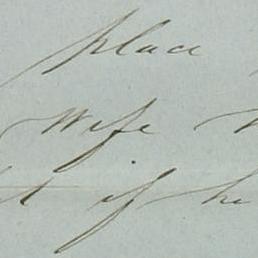 place
Wife
if he